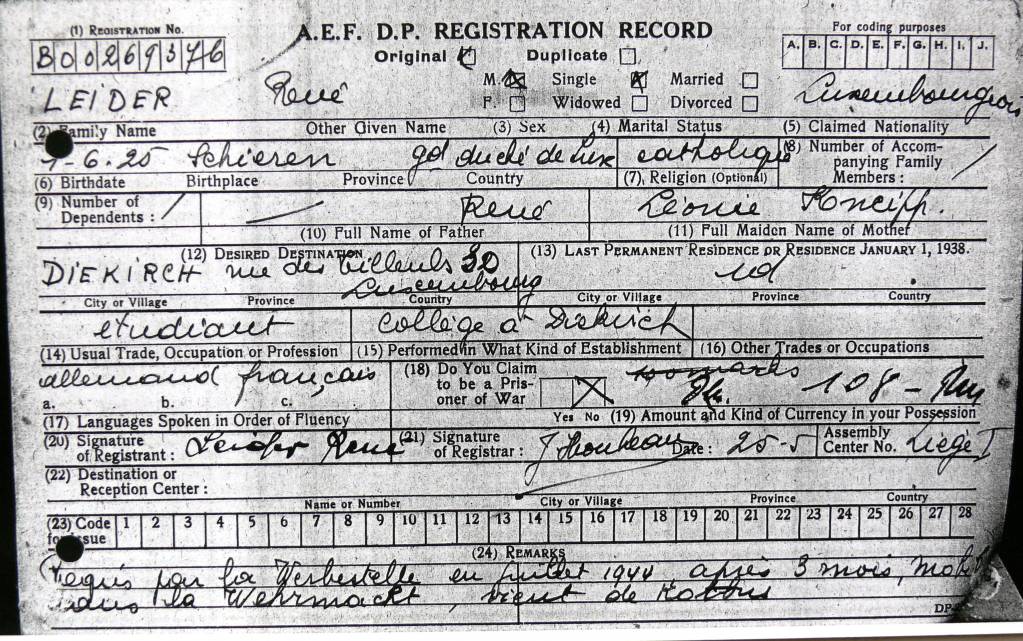 (1) REGISTRATION No.
B00269376
A.E.F. D.P. REGISTRATION RECORD
Original Duplicate
For coding purposes
A. B. C. D. E. F. G. H. I. J.
LEIDER René
M. Single Married
F. Widowed Divorced
Luxembourgeois
(2) Family Name Other Given Name (3) Sex (4) Marital Status (5) Claimed Nationality
-6.25 Schieren gd duché de Lux catholique
(8) Number of Accompanying Family Members : /
(6) Birthdate Birthplace Province Country (7) Religion (Optional)
(9) Number of Dependents : / — René Léonie Kneipp.
(10) Full Name of Father (11) Full Maiden Name of Mother
(12) DESIRED DESTINATION (13) LAST PERMANENT RESIDENCE OR RESIDENCE JANUARY 1, 1938.
DIEKIRCH rue des tilleuls id
Luxembourg
City or Village Province Country City or Village Province Country
étudiant collège à Diekirch
(14) Usual Trade, Occupation or Profession (15) Performed in What Kind of Establishment (16) Other Trades or Occupations
allemand français
a. b. c.
(18) Do You Claim to be a Prisoner of War
108 -
(17) Languages Spoken in Order of Fluency Yes No (19) Amount and Kind of Currency in your Possession
(20) Signature of Registrant : Leider René (21) Signature of Registrar : Date : 25-5 Assembly Center No. Liège I
(22) Destination or Reception Center :
Name or Number City or Village Province Country
(23) Code for Issue 1 2 3 4 5 6 7 8 9 10 11 12 13 14 15 16 17 18 19 20 21 22 23 24 25 26 27 28
(24) REMARKS
par la Werbestelle en juillet 1944 après 3 mois,
dans la Wehrmacht, vient de Kottbus
DP